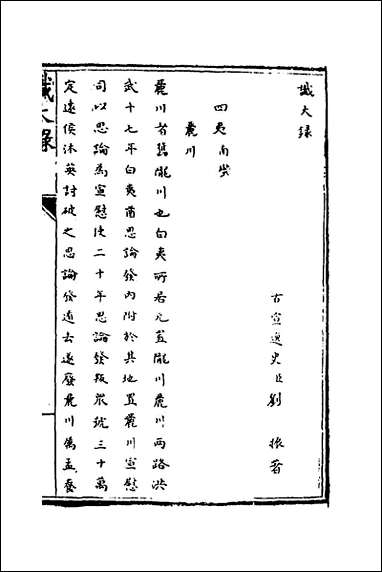 識大錄
古宣逸史臣劉振著
四夷南蠻
麓川
麓川者舊隴川也白夷所居元置隴川麓川兩路洪
武十七年白夷酋思論發內附於其地置麓川宣慰
司以思論為宣慰使二十年思論發叛眾號三十萬
定遠侯沐英討破之思論發遁去遂廢麓川為孟養
識大錄